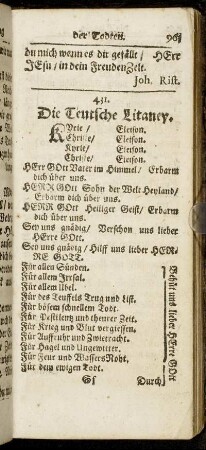 der Todten. 961
du mich wenn es dir gefällt / HErr
JEsu / in dein FreudenZelt.
Joh. Rist.
431.
Die Teutsche Litaney.
KYrie / Eleison.
Christe / Eleison.
Kyrie / Eleison.
Christe / Eleison.
HErr GOtt Vater im Himmel / Erbarm
dich über uns.
HERR GOtt Sohn der Welt Heyland /
Erbarm dich über uns.
HERR GOtt Heiliger Geist / Erbarm
dich über uns.
Sey uns gnädig / Verschon uns lieber
HErre GOtt.
Sey uns gnädig / Hilff uns lieber HER-
RE GOTT.
Für allen Sünden.
Für allem Irrsal.
Für allem Ubel.
Für des Teufels Trug und List.
Für bösem schnellem Todt.
Für Pestilentz und theurer Zeit.
Für Krieg und Blut vergiessen.
Für Auffruhr und Zwietracht.
Für Hagel und Ungewitter.
Für Feur und WassersNoht.
Für dem ewigen Todt.
Behüt uns lieber HErre GOtt
Durch